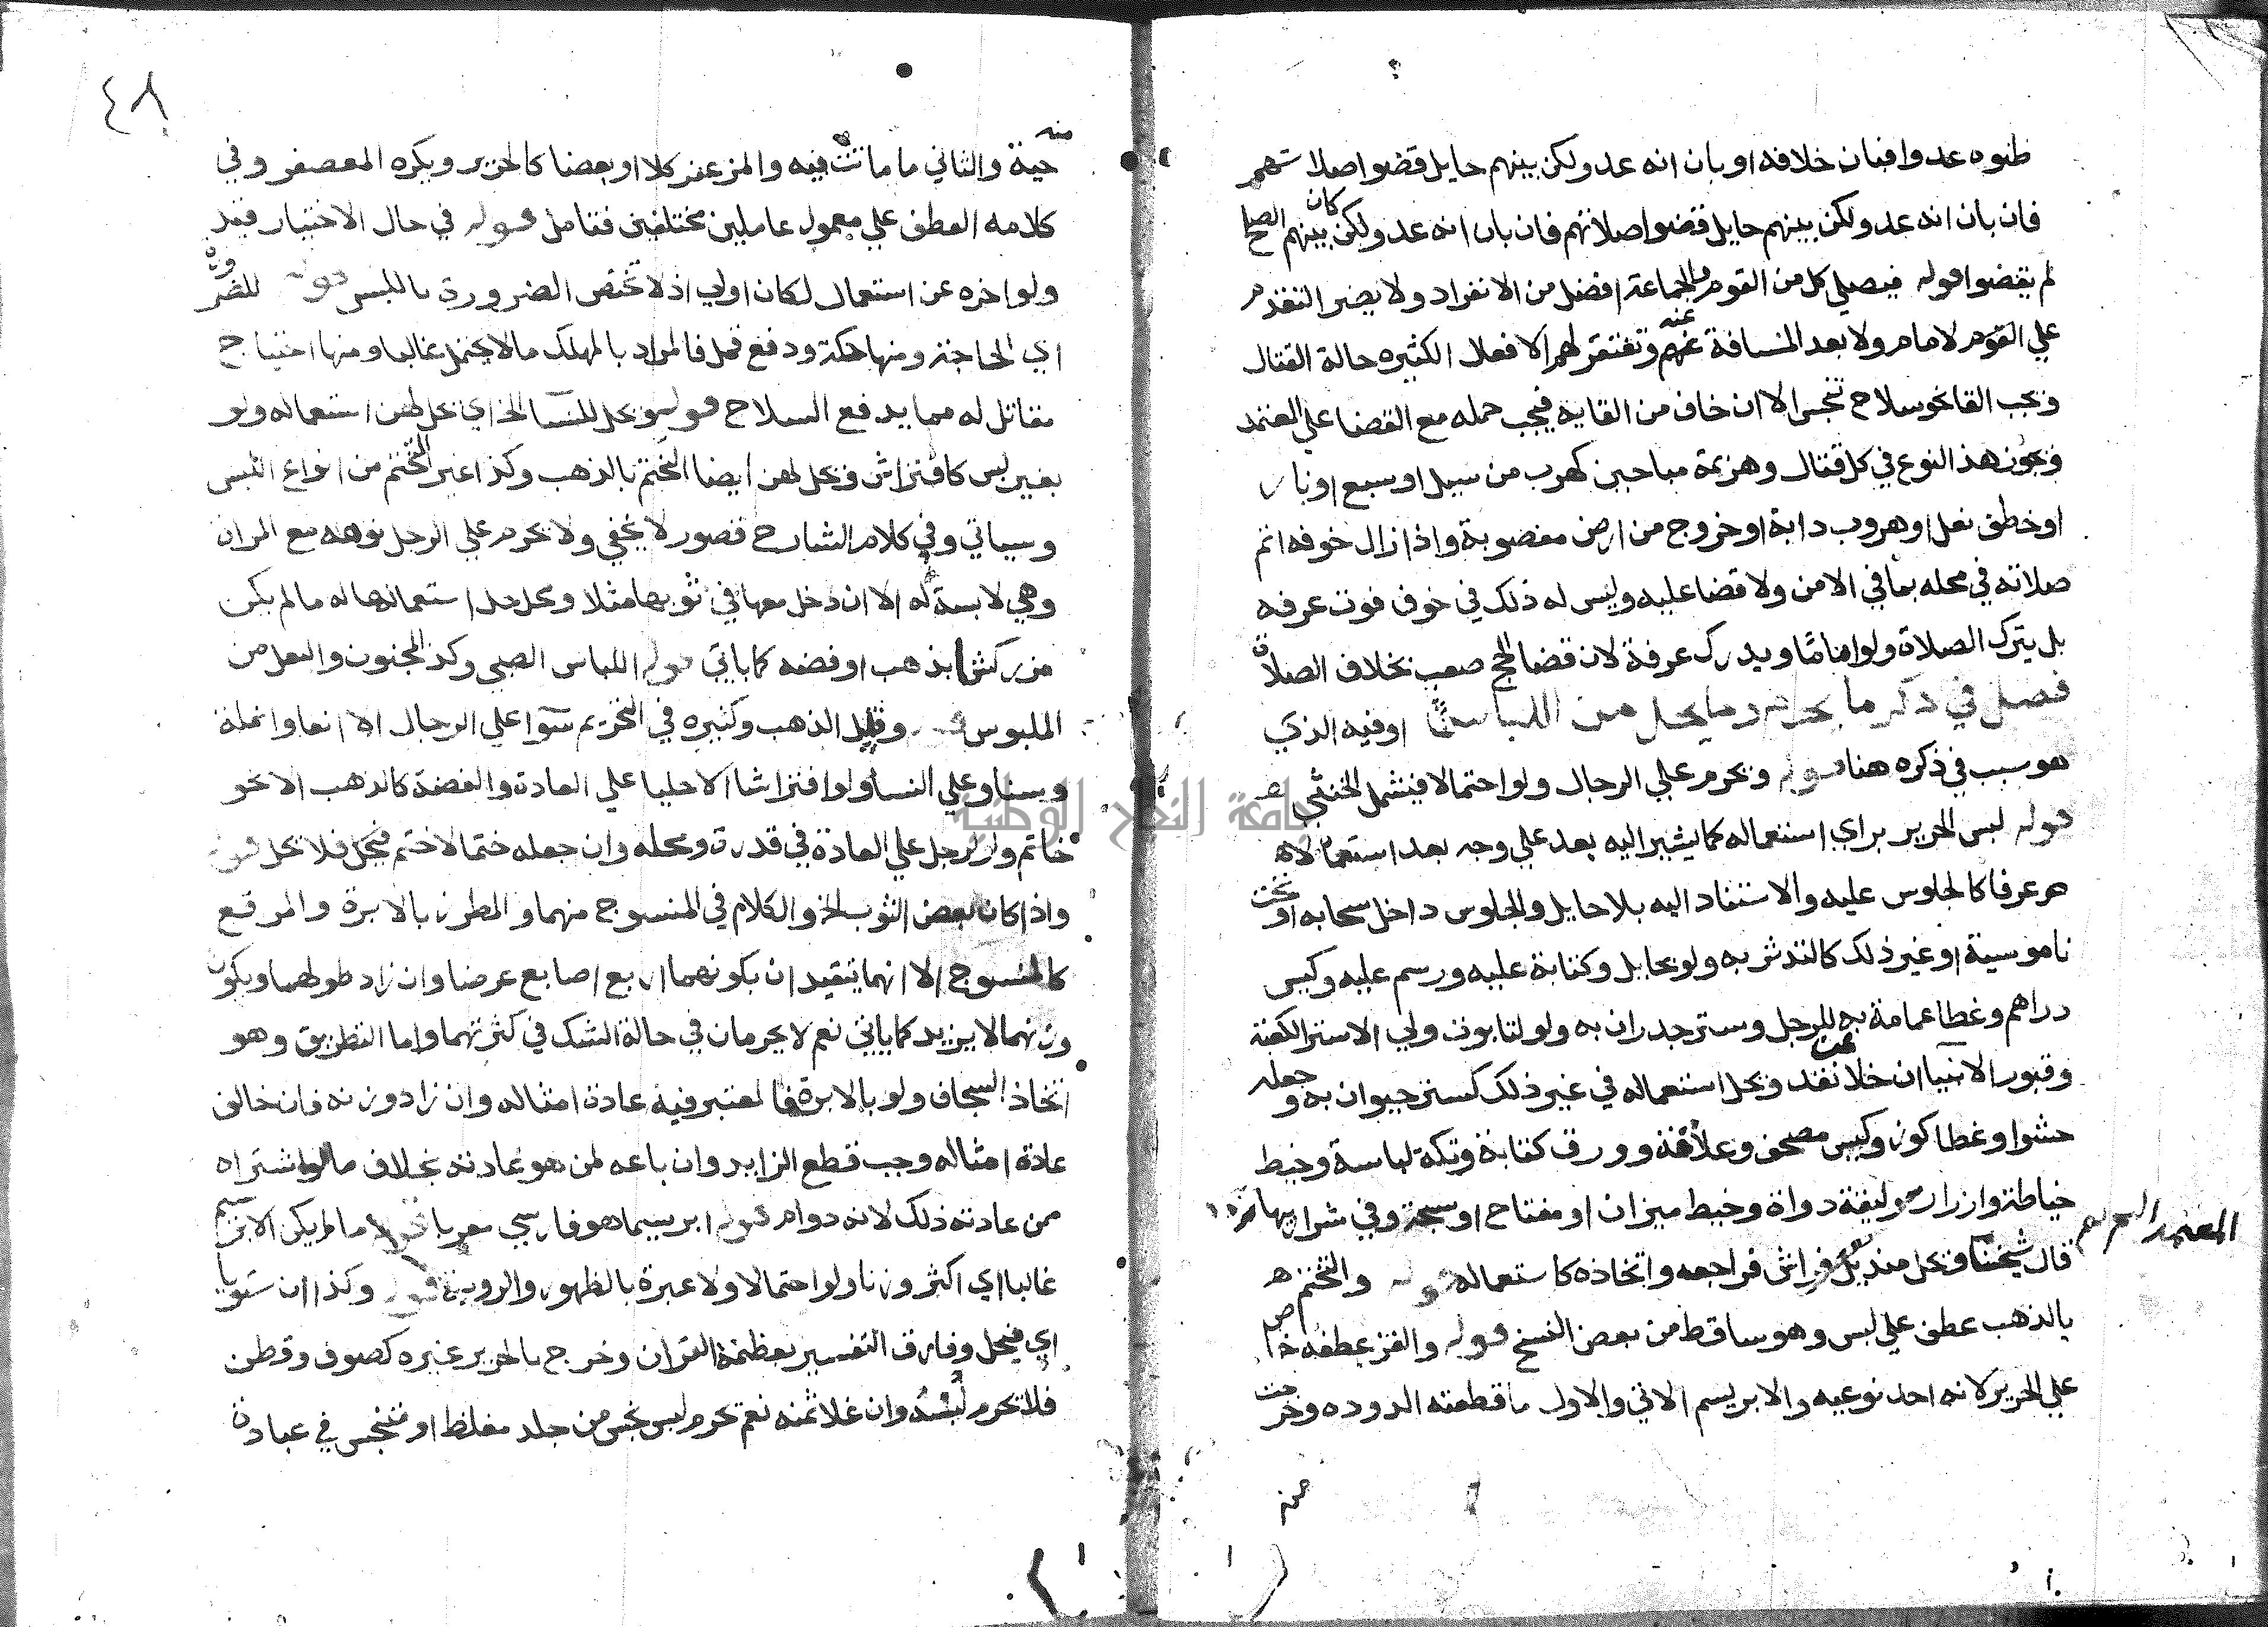 ظنوه عدوا فبان خلافه او بان انه عدو لكن بينهم حايل قضوا صلاتهم
فان بان انه عدو لكن بينهم حايل قضوا صلاتهم فان بان انه عدو لكن كان بينهم الصلح
لم يقضوا قوله فيصلي كل من القوم والجماعة افضل من الانفراد ولا يضر التقدم
علي القوم لامام ولا بعد المسافة عنه وتغتفر لهم الافعال الكثيره حالة القتال
ويجب القا نحو سلاح تنجس الا ان خاف من القايه فيجب حمله مع القضا علي المعتمد
ويجوز هذ النوع في كل قتال وهزيمة مباحين كهرب من سيل او سبع او نار
او خطف نعل او هروب دابة او خروج من ارض مغصوبة واذا زال خوفه اتم
صلاته في محله بما في الامن ولا قضا عليه وليس له ذلك في خوف فوت عرفه
بل يترك الصلاة ولو اياما ويدرك عرفة لان قضا الحج صعب بخلاف الصلاة
فصل في ذكر ما يحرم وما يحل من اللباس اوفيه الذي
هو سبب في ذكره هنا قوله ويحرم علي الرجال ولو احتمالا فيشمل الخنثي
قوله لبس الحرير براي استعماله كما يشير اليه بعد علي وجه بعد استعمالا
هر عرفا كالجلوس عليه والاستناد اليه بلا حايل والجلوس داخل سحابه او تحت
ناموسية او غير ذلك كالتدثر به ولو بحايل وكتابة عليه ورسم عليه وكيس
دراهم وغطا عمامة به للرجل وستر جدران به ولو لتابوت ولي الا ستر الكعبة
وقبور الانبيا ان خلا عن نقد ويحل استعماله في غير ذلك كستر حيوان به وجعله
حشوا وغطا كوز وكيس مصحف وعلاقته وورق كتابة وتكة لباسة وخيط
خياطة وازرار وليقة دواة وخيط ميزان او مفتاح او سبحة وفي شراريبها
المعتمد
قال شيخنا وتحل منديل فراش فراجعه واتخاذه كاستعماله قوله والتختم
بالذهب عطف علي لبس وهو ساقط من بعض النسخ قوله والقز عطفه خاص
علي الحرير لانه احد نوعيه والابريسم الاتي والاول ما قطعته الدوده وخرجت
منه
٤٨
منه
حية والثاني ما ماتت فيه والمزعفر كلا او بعضا كالحرير ويكره المعصفر وفي
كلامه العطف علي معمول عاملين مختلفين فتامل قوله في حال الاختيار قيد
ولو اخره عن استعمال لكان اولي اذ لا تختص الضرورة باللبس قوله للضرورة
اي الحاجة ومنها حكة ودفع قمل فالمراد بالمهلك ما لا يحتمل غالبا ومنها احتياج
مقاتل له مما يدفع السلاح قوله ويحل للنسا الخ اي يحل لهن استعماله ولو
بغير لبس كافتراش ويحل لهن ايضا التختم بالذهب وكذا غير التختم من انواع اللبس
وسياتي وفي كلام الشارح قصور لا يخفي ولا يحرم علي الرجل نومه مع المراة
وهي لابسة له الا ان دخل معها في ثوبها مثلا ويحل استعمالها له ما لم يكن
مزركشا بذهب او فضه كما ياتي قوله اللباس الصبي وكذ المجنون والنعل من
الملبوس قوله وقليل الذهب وكثيره في التحريم سوا علي الرجال الا انفا وانملة
وسنا وعلي النسا ولو افتراشا الا حليا علي العادة والفضة كالذهب الا نحو
خاتم ولو لرجل علي العادة في قدره ومحله وان جعله ختما لاختم فيحل فلا يحل قوله
واذا كان بعض الثوب الخ والكلام في المنسوج منهما والمطرز بالابرة والمرقع
كالمنسوج الا انهما يتقيدان بكونهما اربع اصابع عرضا وان زاد طولهما ويكون
وزنهما لا يزيد كما ياتي نعم لا يحرمان في حالة الشك في كثرتهما واما التطريف وهو
اتخاذ السجاف ولو بالابرة فالمعتبر فيه عادة امثاله وان زاد وزنه فان خالف
عادة امثاله وجب قطع الزايد وان باعه لمن هو عادته بخلاف ما لو اشتراه
من عادته ذلك لانه دوام قوله ابريسما هو فارسي معربا قوله ما لم يكن الابريسم
غالبا اي اكثر وزنا ولو احتمالا ولا عبرة بالظهور والروية قوله وكذا ان ستويا
اي فيحل وفارق التفسير بعظمة القران وخرج بالحرير غيره كصوف وقطن
فلا تحرم لبسه وان غلا ثمنه نعم يحرم لبس نجس من جلد مغلظ او متنجس في عبادة
جامعة النجاح الوطنية